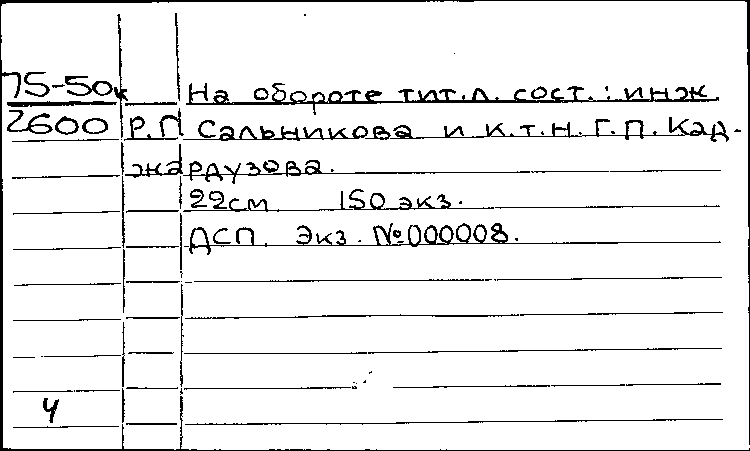 75-50к На обороте тит.л. сост.: инж.
2600 Р.П Сальникова и к.т.н. Г.П. Кад-
жардузова.
22см 150 экз.
ДСП. Экз. №000008.
4